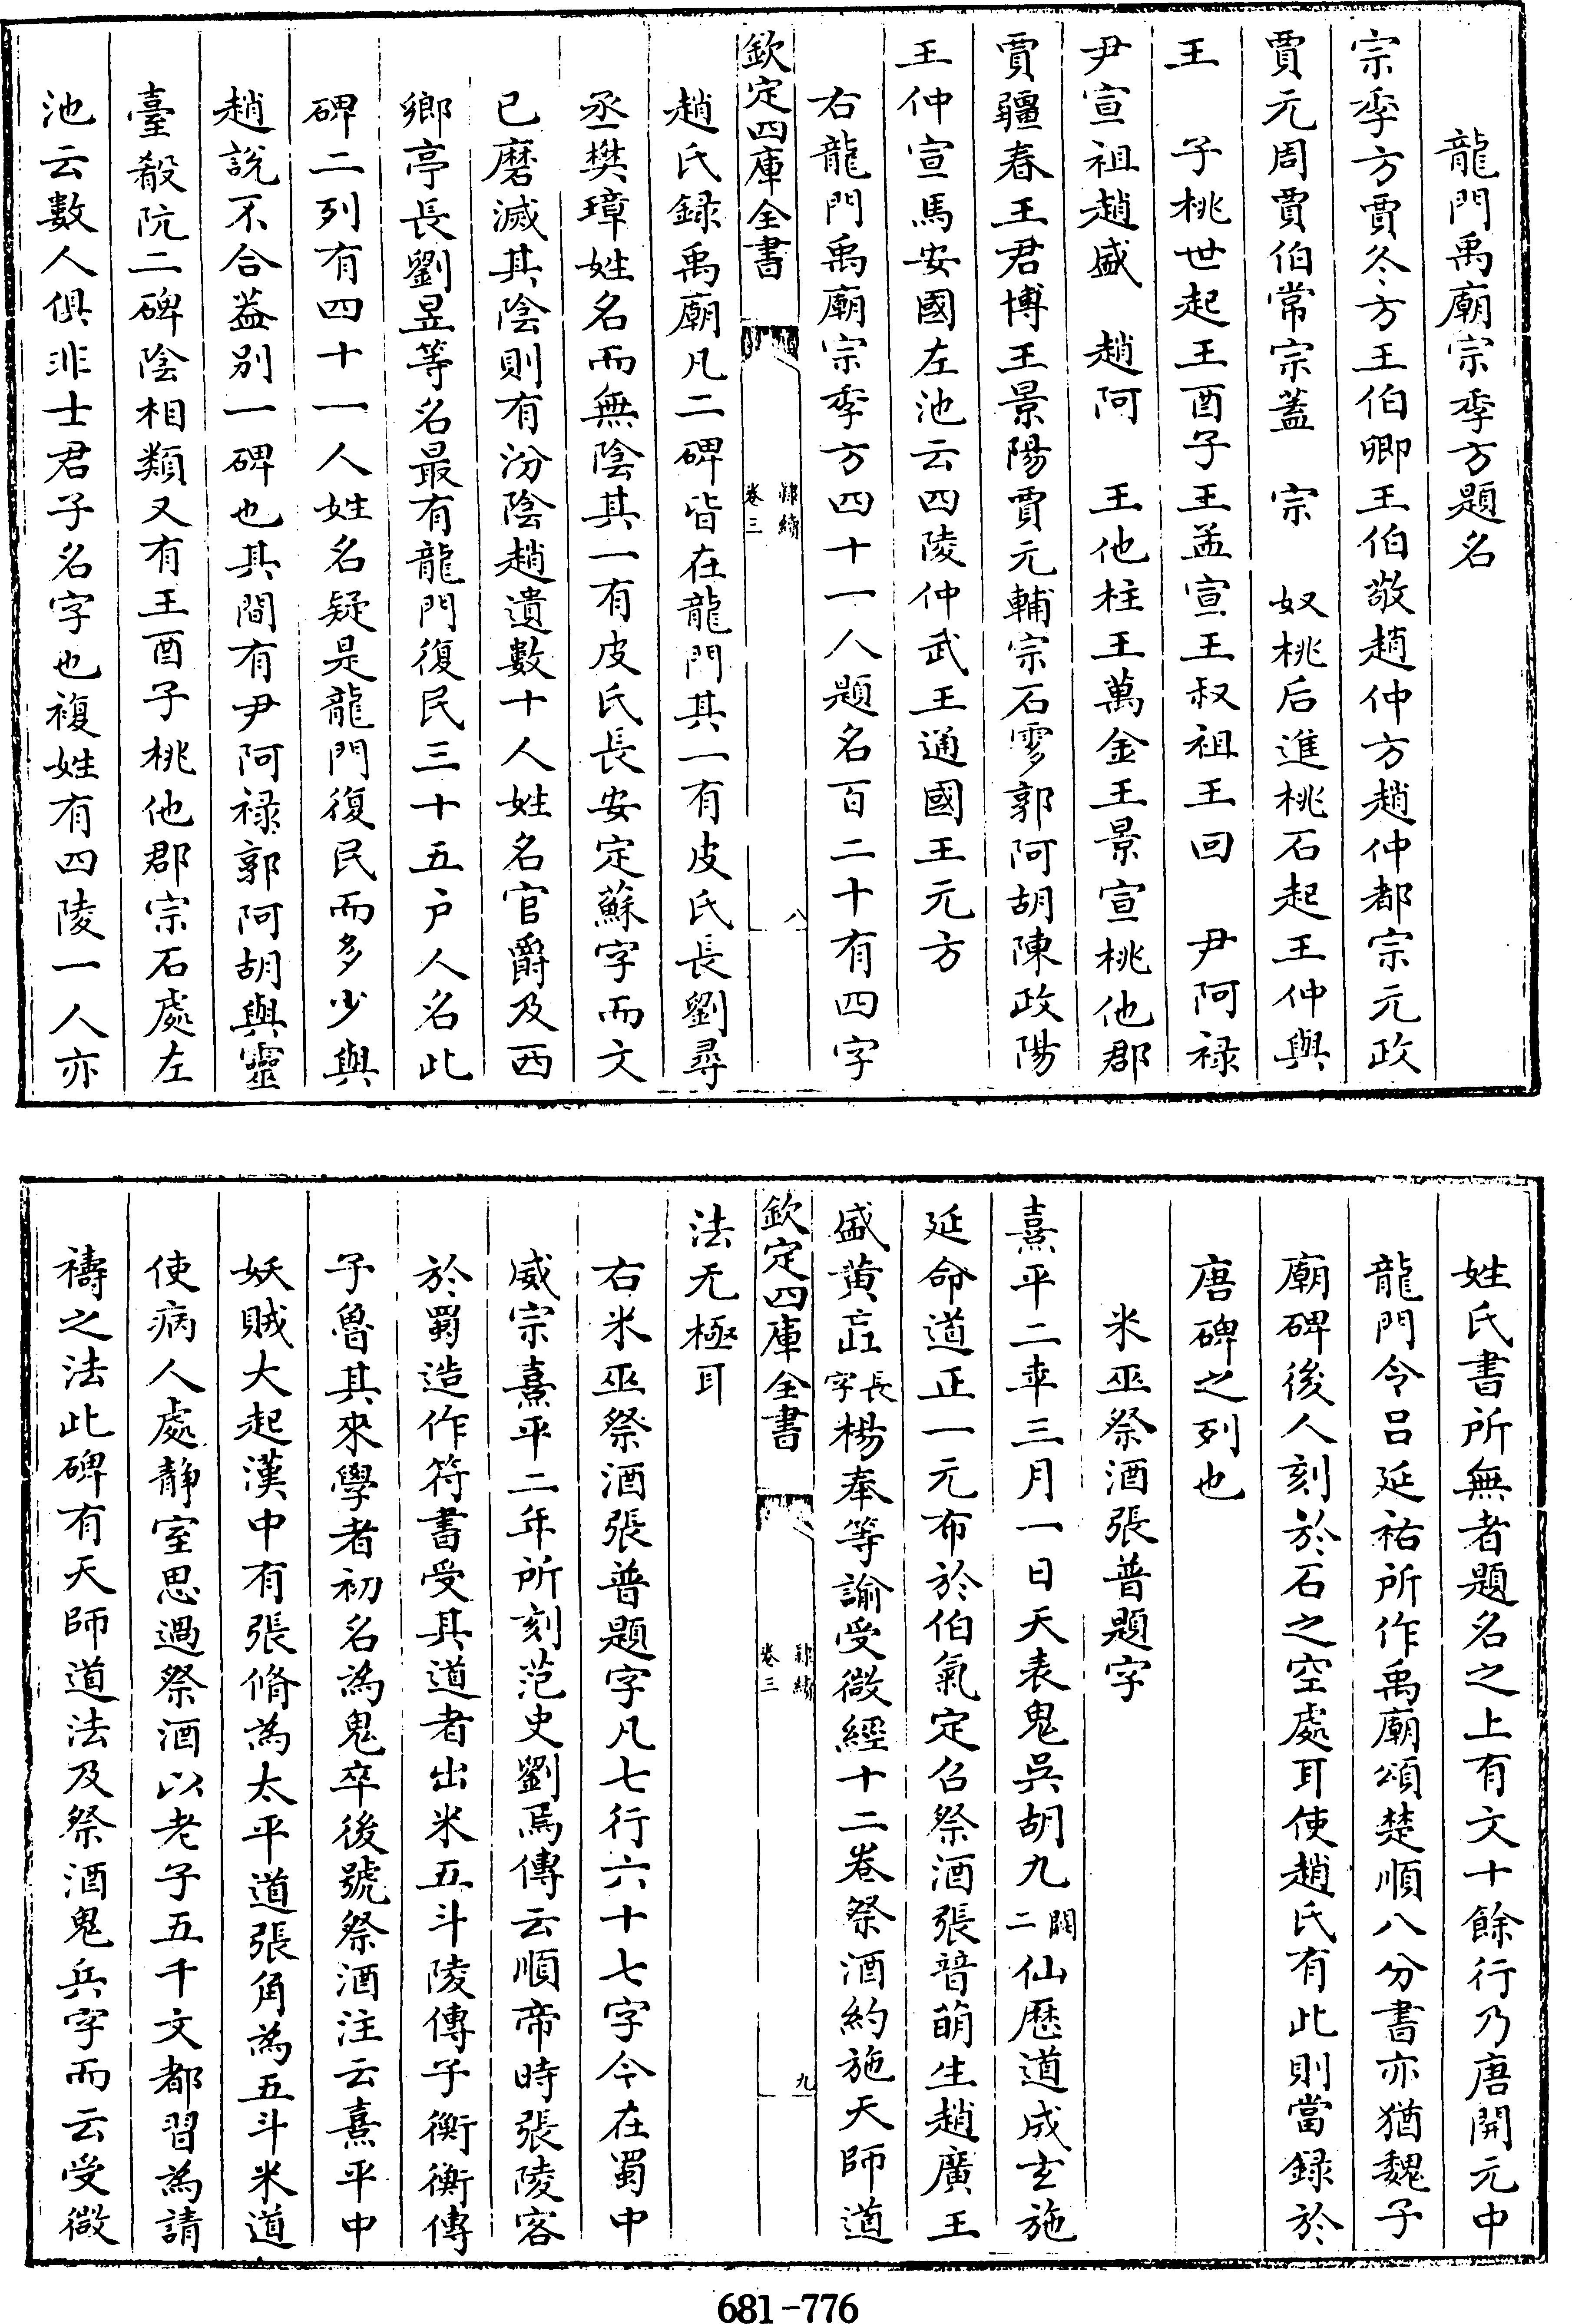 龍門禹廟宗季方題名
宗季方賈冬方王伯卿王伯敬趙仲方趙仲都宗元政
賈元周賈伯常宗蓋　宗　奴桃后進桃石起王仲與
王　子桃世起王酉子王孟宣王叔祖王回　尹阿禄
尹宣祖趙盛　趙阿　王他柱王萬金王景宣桃他郡
賈疆春王君博王景陽賈元輔宗石雺郭阿胡陳政陽
王仲宣馬安國左池云四陵仲武王通國王元方
右龍門禹廟宗季方四十一人題名百二十有四字
欽定四庫全書
隸續
卷三
八
趙氏録禹廟凡二碑皆在龍門其一有皮氏長劉尋
丞樊璋姓名而無陰其一有皮氏長安定蘇字而文
已磨滅其陰則有汾陰趙遺數十人姓名官爵及西
鄉亭長劉昱等名最有龍門復民三十五户人名此
碑二列有四十一人姓名疑是龍門復民而多少與
趙説不合蓋别一碑也其間有尹阿禄郭阿胡與靈
臺殽阬二碑陰相類又有王酉子桃他郡宗石處左
池云數人俱非士君子名字也複姓有四陵一人亦
姓氏書所無者題名之上有文十餘行乃唐開元中
龍門令吕延祐所作禹廟頌楚順八分書亦猶魏子
廟碑後人刻於石之空處耳使趙氏有此則當録於
唐碑之列也
米巫祭酒張普題字
熹平二年三月一日天表鬼吳胡九闕二仙歷道成玄施
延命道正一元布於伯氣定召祭酒張普萌生趙廣王
盛黄長字楊奉等諭受微經十二卷祭酒約施天師道
法无極耳
欽定四庫全書
隸續
卷三
九
右米巫祭酒張普題字凡七行六十七字今在蜀中
威宗熹平二年所刻范史劉焉傳云順帝時張陵客
於蜀造作符書受其道者出米五斗陵傳子衡衡傳
子魯其來學者初名為鬼卒後號祭酒注云熹平中
妖賊大起漢中有張脩為太平道張角為五斗米道
使病人處静室思過祭酒以老子五千文都習為請
禱之法此碑有天師道法及祭酒鬼兵字而云受微
681-776